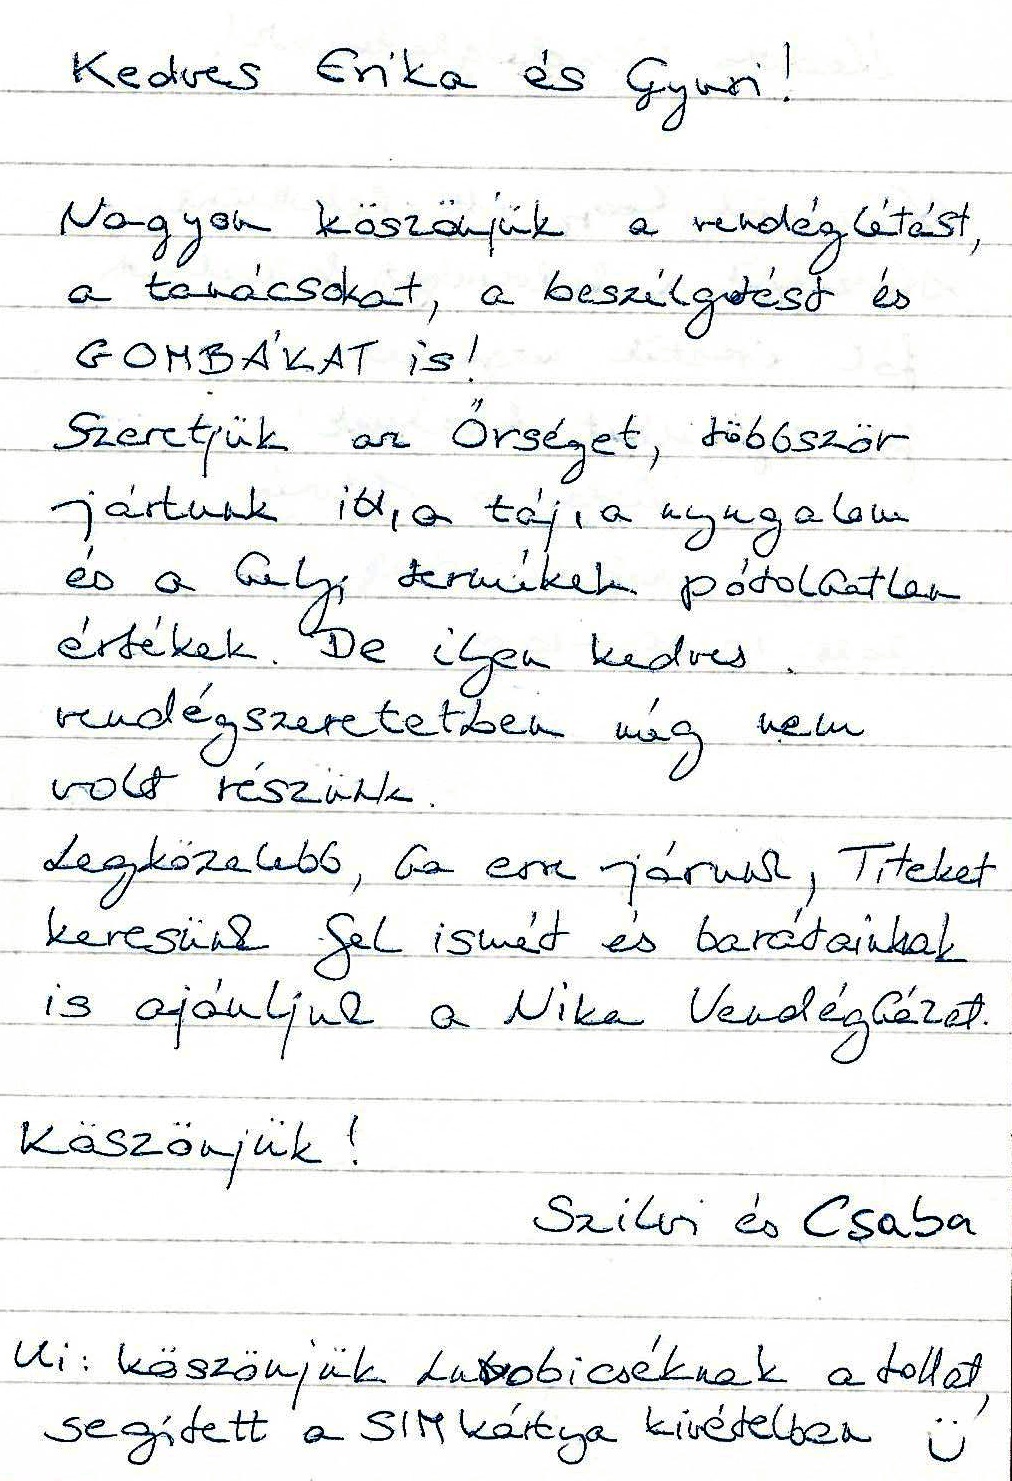 Kedves Erika és Gyuri!
Nagyon köszönjük a vendéglátást,
a tanácsokat, a beszélgetést és
GOMBÁKAT is!
Szeretjük az Őrséget, többször
jártunk itt, a táj, a nyugalom
és a helyi termékek pótolhatlan
értékek. De ilyen kedves
vendégszeretetben még nem
volt részünk.
Legközelebb, ha erre járunk, Titeket
keresünk fel ismét és barátainknak
is ajánljuk a Nika Vendégházat.
Köszönjük!
Szilvi és Csaba
Ui: köszönjük a tollat,
segített a SIM kártya kivételben ü